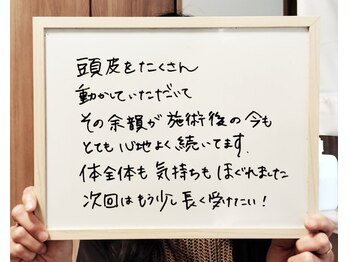 頭皮をたくさん
動かしていただいて
その余韻が施術後の今も
とても心地よく続いてます。
体全体も気持ちもほぐれました
次回はもう少し長く受けたい!